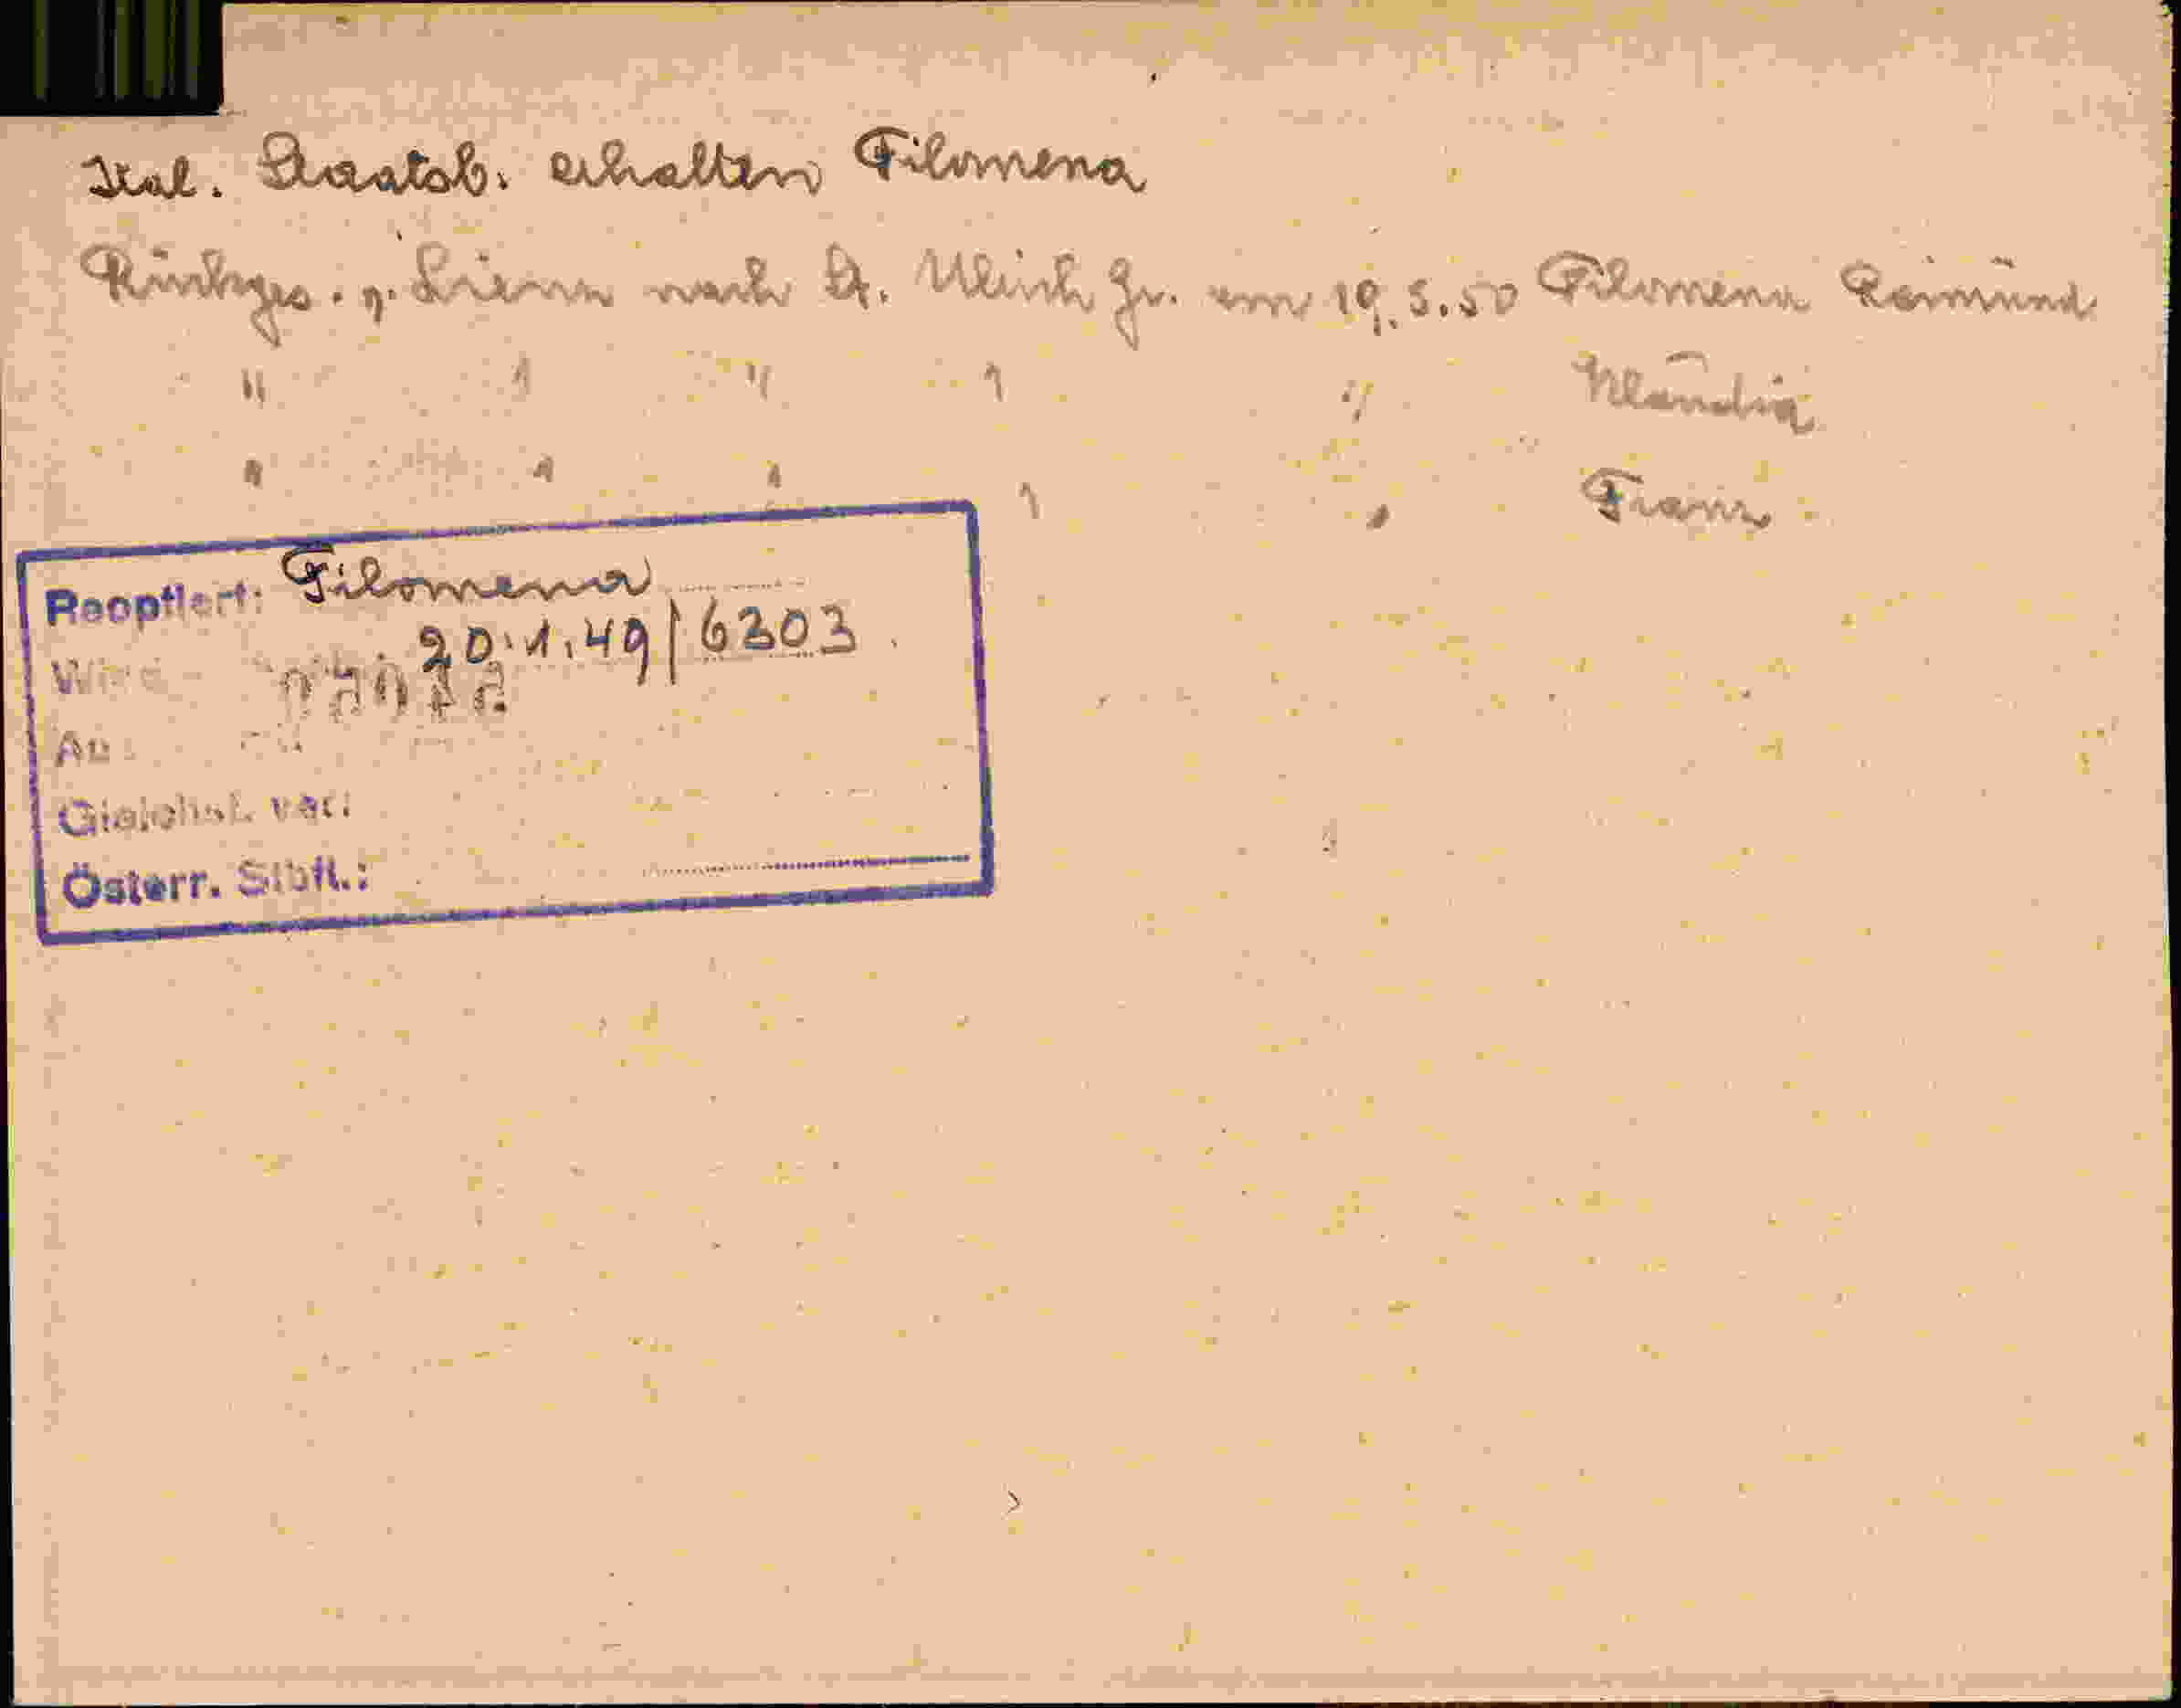 Ital. Staatsb. erhalten Filomena
Rückges. v. Lienz nach St. Ulrich Gr. am 19.5.50 Filomena Raimund
" " " " " Klaudia
" " " " " Franz
Reoptiert: Filomena
20.1.49/6303
Österr. Stbft.: